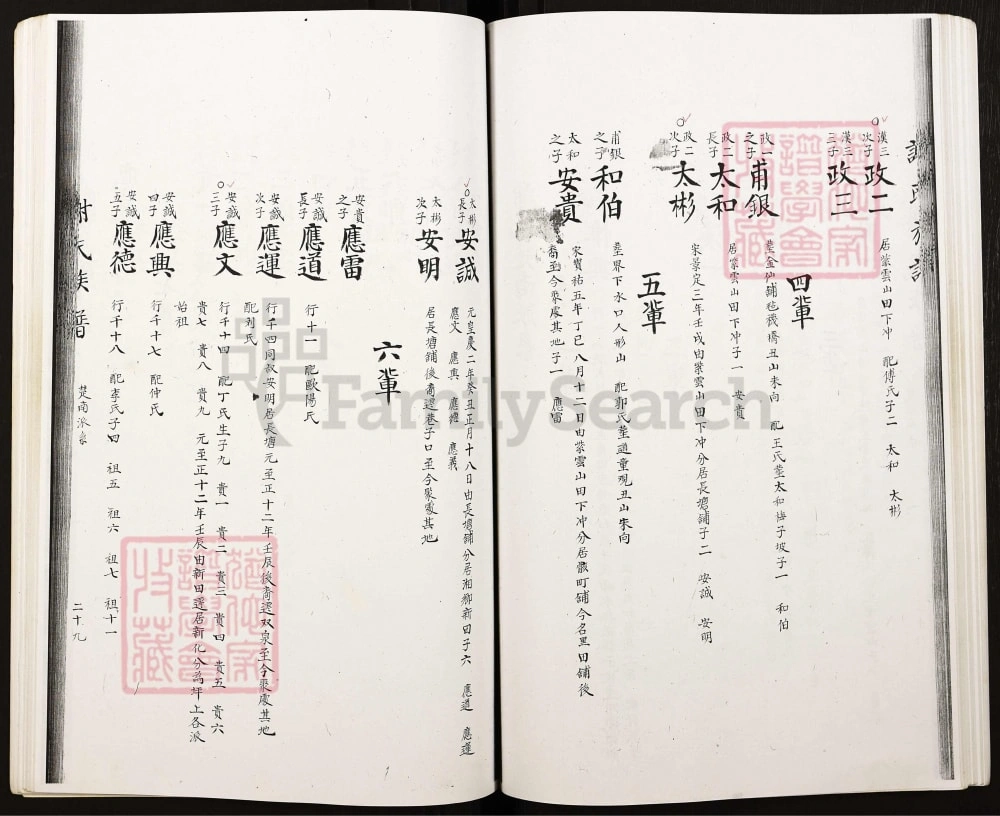 漢三次子 政二 居紫雲山田下冲 配傅氏子二 太和 太彬
漢三三子 政三
四輩
政一之子 甫銀 葬金仙鋪 丑山未向 配王氏葬太和 子坡子一 和伯
政二長子 太和 居紫雲山田下冲子一 安貴
政二次子 太彬 宋景定三年壬戌由紫雲山田下冲分居長塘鋪子二 安誠 安明
五輩
甫銀之子 和伯 葬界下水口人形山 配郭氏葬道童觀丑山未向
太和之子 安貴 宋寶祐五年丁巳八月十二日由紫雲山田下冲分居 町鋪今名黑田鋪後
裔至今聚處其地子一 應雷
太彬長子 安誠 元皇慶二年癸丑正月十八日由長塘鋪分居湘鄉新田子六 應道 應運
應文 應典 應德 應義
太彬次子 安明 居長塘鋪後裔遷巷子口至今聚處其地
六輩
安貴之子 應雷
安誠長子 應道 行十一 配歐陽氏
安誠次子 應運 行千四同叔安明居長塘元至正十二年壬辰後裔遷双泉至今聚處其地
配列氏
安誠三子 應文 行千十四 配丁氏生子九 貴一 貴二 貴三 貴四 貴五 貴六
貴七 貴八 貴九 元至正十二年壬辰由新田遷居新化分為坪上各派
始祖
安誠四子 應典 行千十七 配仲氏
安誠五子 應德 行千十八 配李氏子四 祖五 祖六 祖七 祖十一
氏族譜
楚南派系
二十九
FamilySearch